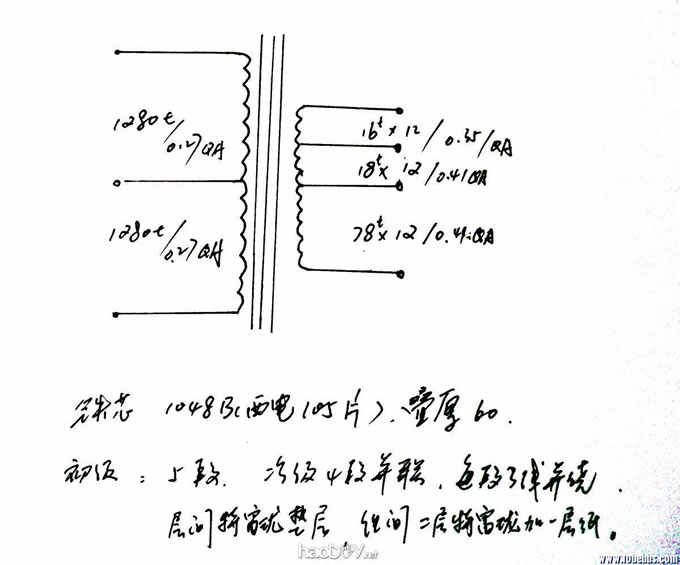 1280t/0.27QA
1280t/0.27QA
16t×12/0.35/QA
18t×12/0.41QA
78t×12/0.41QA
铁芯 1048B(西电105片)、叠厚60.
初级:5段. 次级4段并联,每段3线并绕.
层间特富珑垫层,组间二层特富珑加一层纸。
haoDIY.net